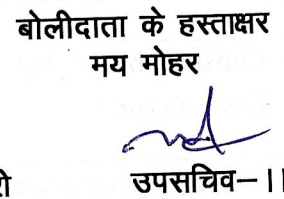 बोलीदाता के हस्ताक्षर
मय मोहर
उपसचिव–II